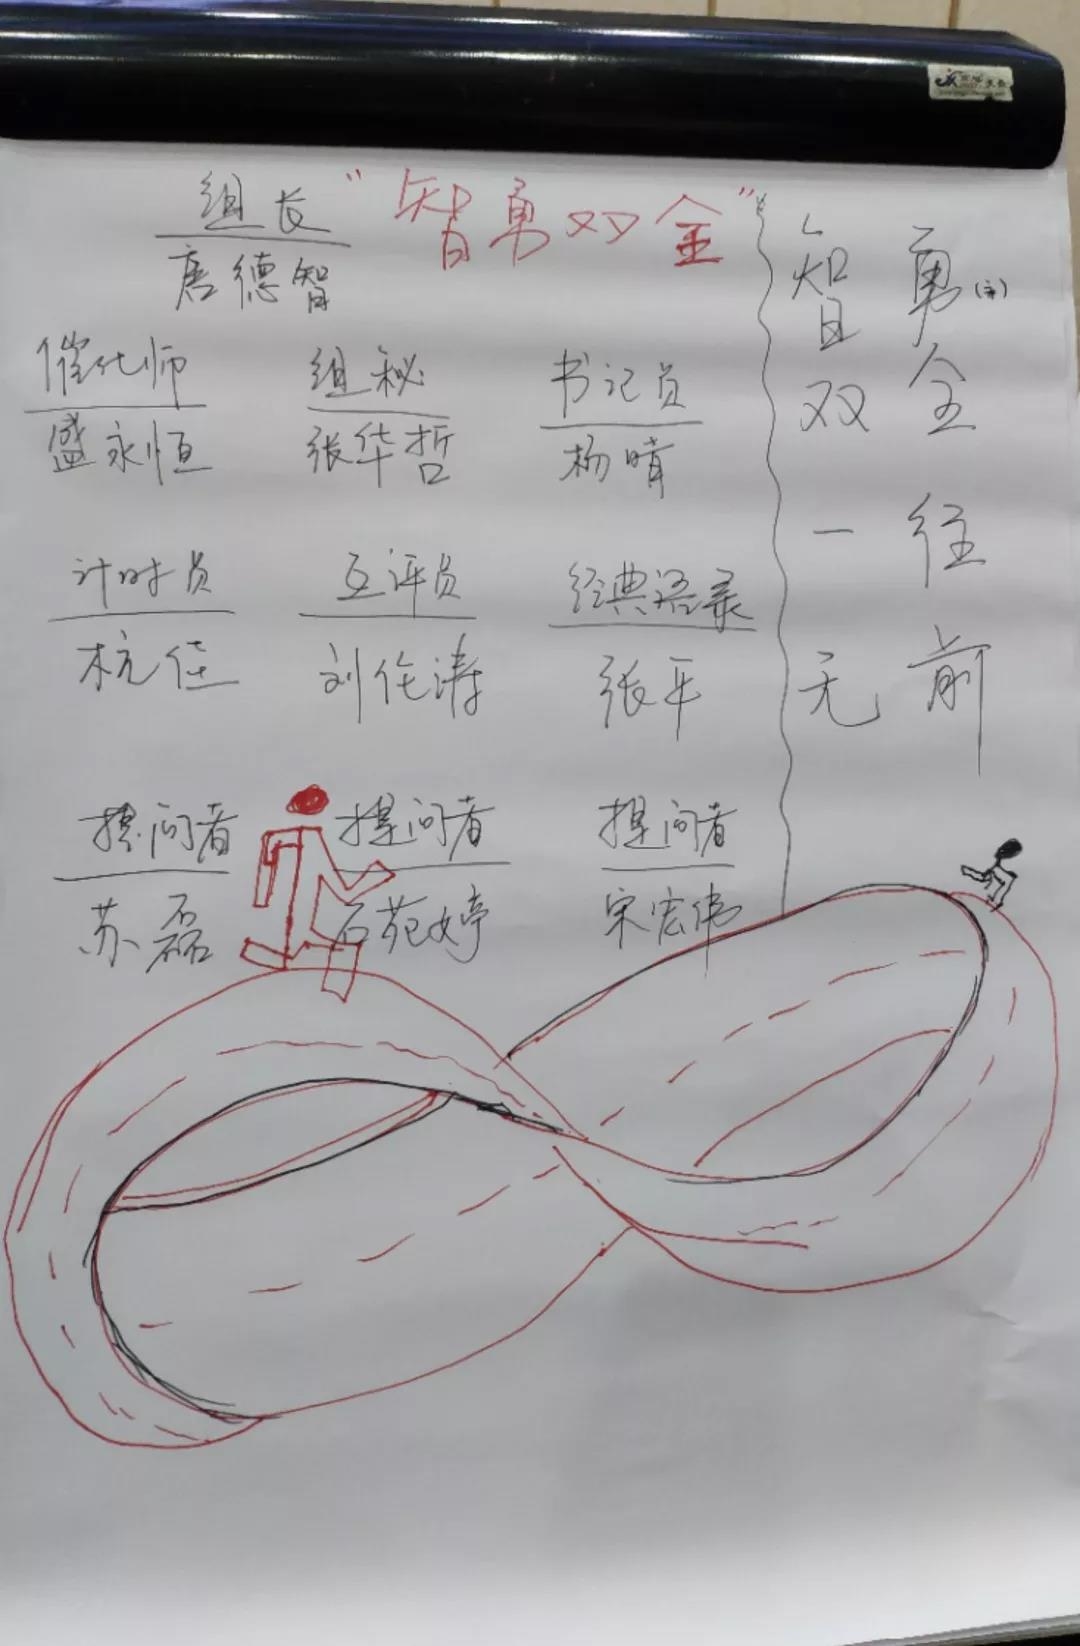 组长 "智勇双全"
唐德智
催化师 组秘 书记员
盛永恒 张华哲 杨晴
计时员 互评员 经典语录
杭佳 刘伦涛 张平
提问者 提问者 提问者
苏磊 石苑婷 宋宏伟
智勇
双全
一往
无前